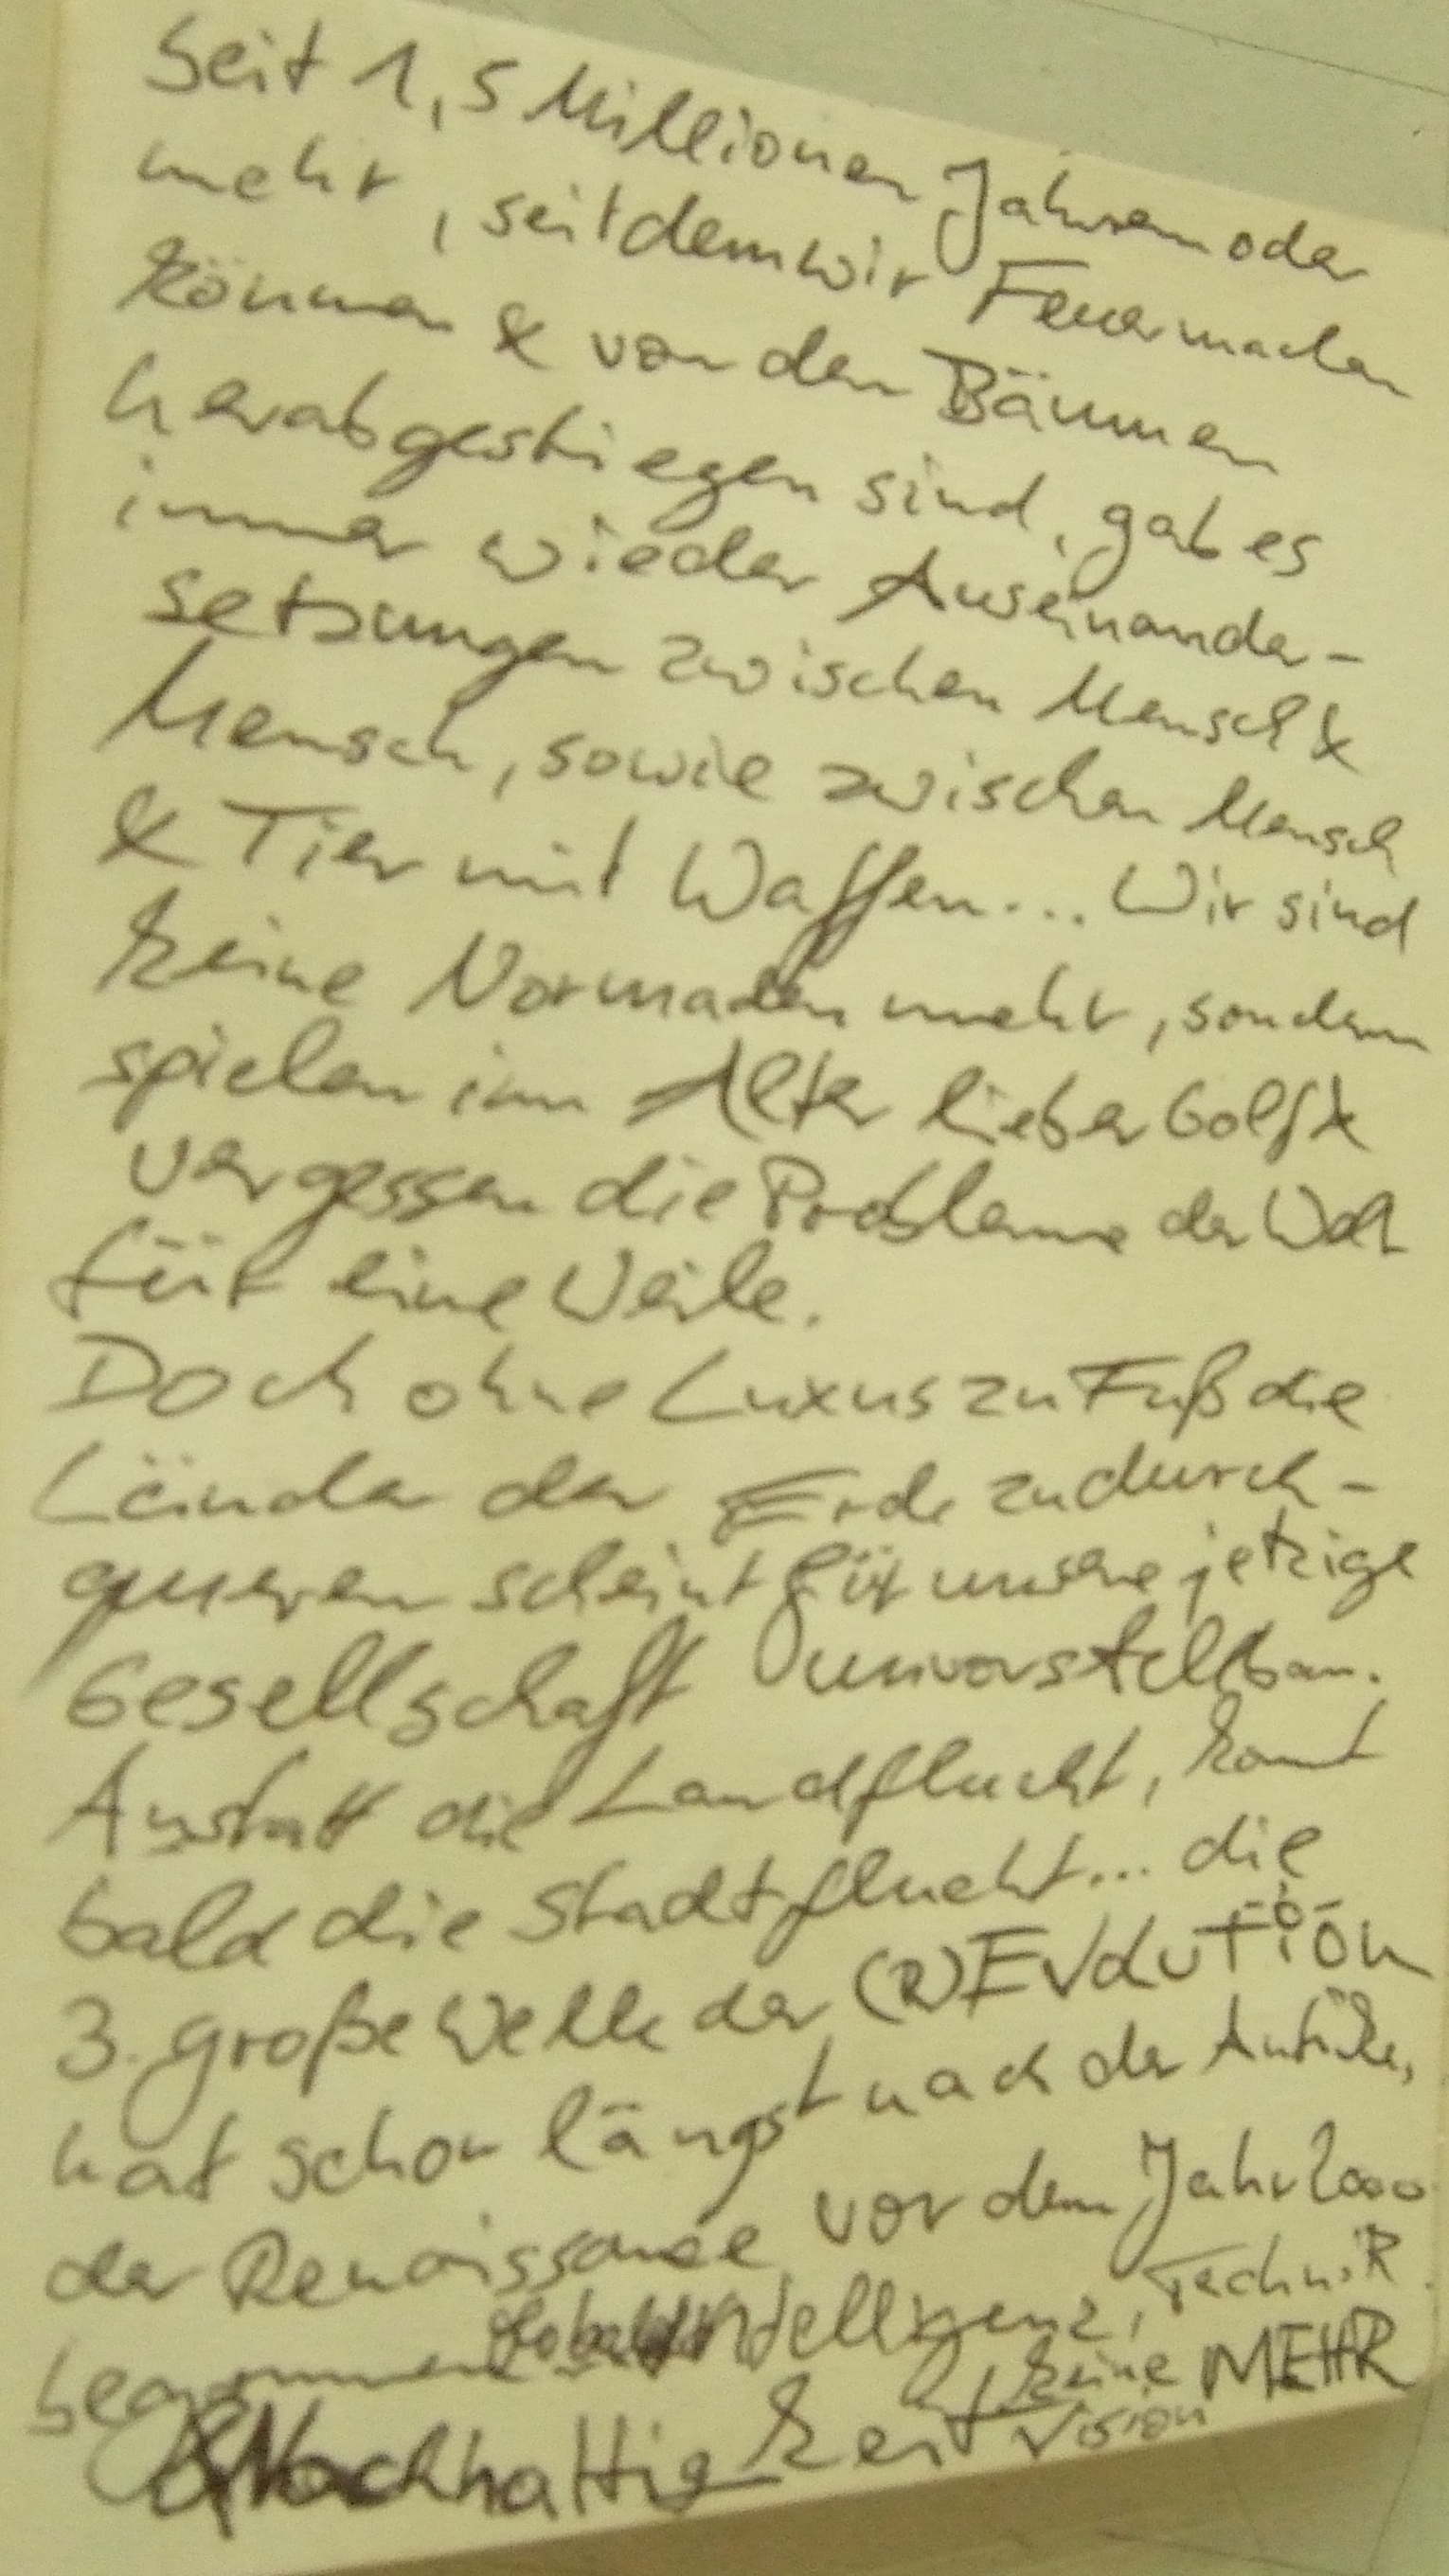 Seit 1,5 Millionen Jahren oder
mehr, seitdem wir Feuer machen
können & von den Bäumen
herabgestiegen sind, gab es
immer wieder Auseinander-
setzungen zwischen Mensch &
Mensch, sowie zwischen Mensch
& Tier mit Waffen... Wir sind
keine Normaden mehr, sondern
spielen im Alter lieber Golf &
vergessen die Probleme der Welt
für eine Weile.
Doch ohne Luxus zu Fuß die
Länder der Erde zu durch-
queren scheint für unsere jetzige
Gesellschaft unvorstellbar.
Anstatt die Landflucht, kommt
bald die Stadtflucht... die
3. große Welle der (R)EVOLUTION
hat schon längst nach der Antike,
der Renaissance vor dem Jahr 2000
begonnen Intelligenz, Technik
& Nachhaltigkeit ist keine Vision MEHR